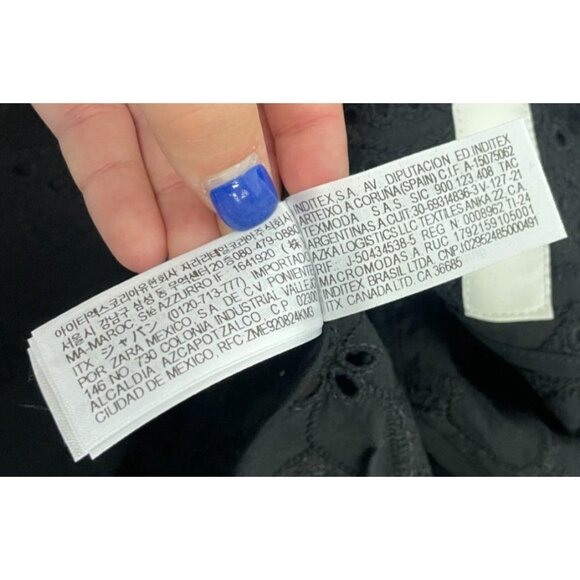 아이티엑스코리아유한회사 자라리테일코리아주식회사
서울시 강남구 삼성동 무역센터20층080-479-0880
MA-MAROC SIG AZZURRO IF 1641920 (株)
ITX ジャパン (0120-713-777) IMPORTADO
POR: ZARA MEXICO, S.A. DE C.V. PONIENTE
146 NO. 730 COLONIA INDUSTRIAL VALLEJO
ALCALDIA AZCAPOTZALCO, C.P. 02300
CIUDAD DE MEXICO, RFC ZME920824KM3
INDITEX S.A. AV. DIPUTACION ED.INDITEX
ARTEIXO A CORUÑA(SPAIN) C.I.F. A-15075062
TEXMODA S.A.S. SIC 900 123 408 TAC
ARGENTINAS A.CUIT 30-69314836-3 V-127-21
AZKA LOGISTICS LLC TEXTILES ANKA 22 C.A.
RIF J-50434538-5 REG N. 0008962 TI-24
MACROMODAS A RUC 1792159105001
INDITEX BRASIL LTDA. CNPJ.02952485000491
ITX CANADA LTD. CA 36685